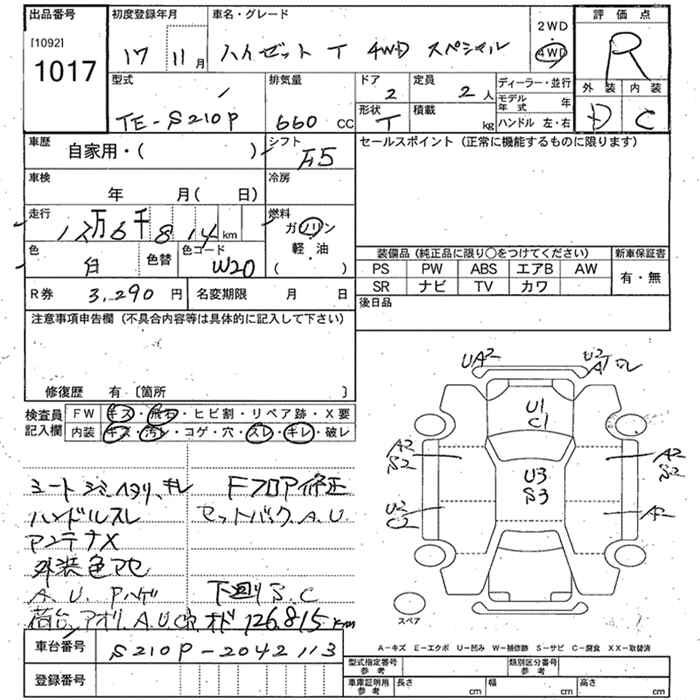 出品番号 初度登録年月 車名・グレード 2WD 評価点
[1092] 1017 17 11月 ハイゼット T 4WD スペシャル 4WD R
型式 排気量 ドア 定員 ディーラー・並行 外装 内装
TE-S210P 660 CC 2 2人 モデル年式 年 D C
形状 T 積載 kg ハンドル 左・右
車歴 自家用・( ) シフト F5 セールスポイント (正常に機能するものに限ります)
車検 年 月( 日) 冷房
走行 12万6千814km 燃料 ガソリン
色 白 色替 色コード W20 軽・油 ( )
装備品(純正品に限り○をつけてください) 新車保証書
PS PW ABS エアB AW 有・無
SR ナビ TV カワ
R券 3,290円 名変期限 月 日 後日品
注意事項申告欄 (不具合内容等は具体的に記入して下さい)
修復歴 有 [箇所 ]
検査員記入欄 FW キズ・飛石・ヒビ割・リペア跡・X要
内装 キズ・汚レ・コゲ・穴・スレ・キレ・破レ
UA2 U2
U1
C1
A2 S2 U3 S3 A2 S2
U2 C2 A2
シートシミ ヘタリ、キレ Fフロア修正
ハンドルスレ セットバック、A.U.
アンテナX
外装色アセ
A.U. Pハゲ 下廻りS.C
荷台、アオリA.U オド126,815km
スペア
A-キズ E-エクボ U-凹み W-補修跡 S-サビ C-腐食 XX-取替済
車台番号 S210P-2042113
型式指定番号 参考 類別区分番号 参考
登録番号 車庫証明用 参考 長さ cm 幅 cm 高さ cm